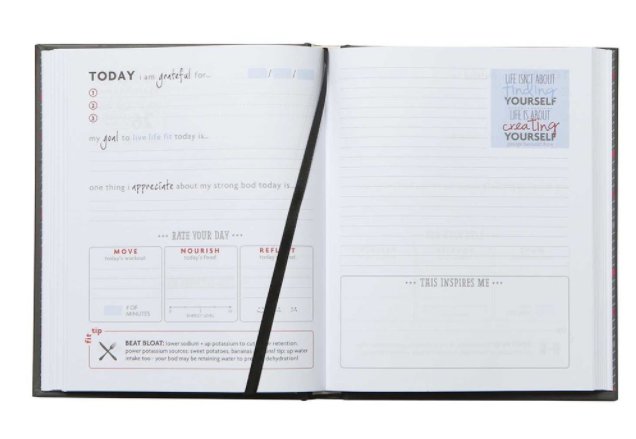 TODAY i am grateful for...
/ /
1
2
3
my goal to live life fit today is...
one thing i appreciate about my strong bod today is...
••• RATE YOUR DAY •••
MOVE
today's workout
# OF
MINUTES
NOURISH
today's food
REFL T
today
fit tip
BEAT BLOAT: lower sodium + up potassium to cut retention.
power potassium sources: sweet potatoes, bananas tip: up water
intake too - your bod may be retaining water to pre dehydration!
LIFE ISN'T ABOUT
finding
YOURSELF
LIFE IS ABOUT
creating
YOURSELF
••• THIS INSPIRES ME •••